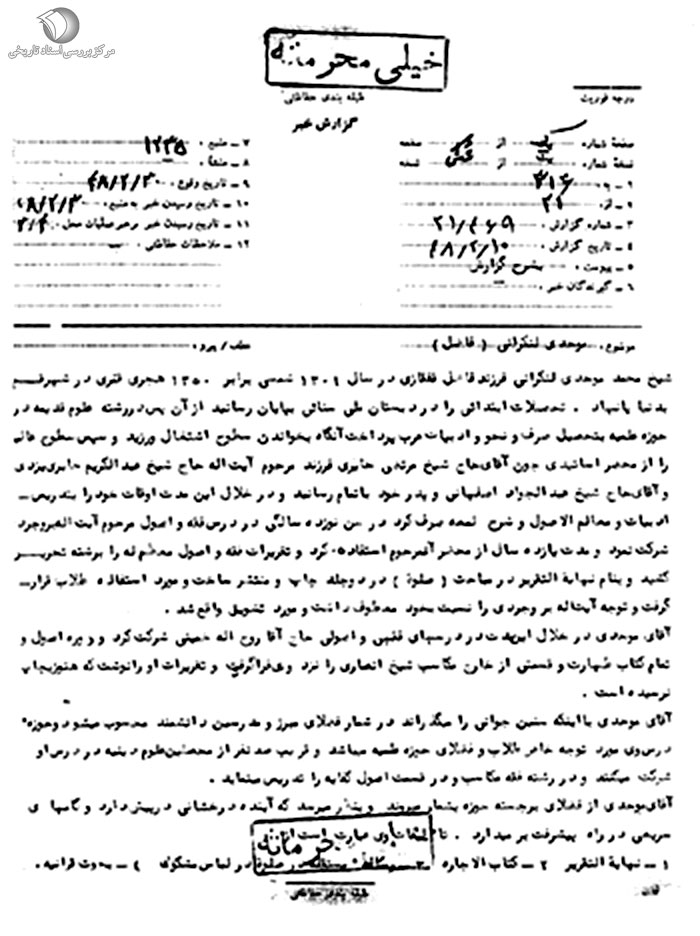 مرکز بررسی اسناد تاریخی
خیلی محرمانه
طبقه بندی حفاظتی
درجه فوریت
گزارش خبر
صفحه شماره یک از صفحه
نسخه شماره از نسخه
۱ - به ۳۱۶
۲ - از ۲۱
۳ - شماره گزارش
۴ - تاریخ گزارش ۴۸/۲/۱۰
۵ - پیوست بشرح گزارش
۶ - گیرندگان خبر
۷ - منبع ۱۲۳۵
۸ - منشأ
۹ - تاریخ وقوع ۴۸/۲/۳۰
۱۰ - تاریخ رسیدن خبر به منبع
۱۱ - تاریخ رسیدن خبر به رهبر عملیات محل
۱۲ - ملاحظات حفاظتی
موضوع موحدی لنکرانی (فاضل) عطف / پیرو
شیخ محمد موحدی لنکرانی فرزند فاضل قفقازی در سال ۱۳۰۹ شمسی برابر ۱۳۵۰ هجری قمری در شهر قم
بدنیا پانهاد . تحصیلات ابتدائی را در دبستان ملی سنائی بپایان رسانید از آن پس در رشته علوم قدیمه در
حوزه علمیه بتحصیل صرف و نحو و ادبیات عرب پرداخت آنگاه بخواندن سطوح اشتغال ورزید و سپس سطوح عالیه
را از محضر اساتیدی چون آقای حاج شیخ مرتضی حایری فرزند مرحوم آیت اله حاج شیخ عبدالکریم حایری یزدی
و آقای حاج شیخ عبدالجواد اصفهانی و پدر خود باتمام رسانید و در خلال این مدت اوقات خود را بتدریس
ادبیات و معالم الاصول و شرح لمعه صرف کرد در سن نوزده سالگی در درس فقه و اصول مرحوم آیت اله بروجردی
شرکت نمود و مدت یازده سال از محضر آنمرحوم استفاده کرد و تقریرات فقه و اصول معظم له را برشته تحریر
کشید و بنام نهایة التقریر در مباحث (صلوة) در دو جلد چاپ و منتشر ساخت و مورد استفاده طلاب قرار
گرفت و توجه آیت اله بروجردی را نسبت بخود معطوف داشت و مورد تشویق واقع شد .
آقای موحدی در خلال این مدت در درسهای فقهی و اصولی حاج آقا روح اله خمینی شرکت کرد و دوره اصول و
تمام کتاب طهارت و قسمتی از خارج مکاسب شیخ انصاری را نزد وی فراگرفت و تقریرات او را نوشت که هنوز بچاپ
نرسیده است .
آقای موحدی با اینکه سنین جوانی را میگذراند در شمار فضلای مبرز و مدرسین دانشمند محسوب میشود و حوزه
درس وی مورد توجه خاص طلاب و فضلای حوزه علمیه میباشد و قریب صد نفر از محصلین علوم دینیه در درس او
شرکت میکنند و در رشته فقه مکاسب و در قسمت اصول کفایه را تدریس مینماید .
آقای موحدی از فضلای برجسته حوزه بشمار میرود و بنظر میرسد که آینده درخشانی در پیش دارد و گامهای
سریعی در راه پیشرفت بر میدارد . تالیفات وی عبارت است از
۱ - نهایة التقریر ۲ - کتاب الاجاره ۳ - در صلوة در لباس مشکوک ۴ - بحوث قرآنیه .
محرمانه
طبقه بندی حفاظتی